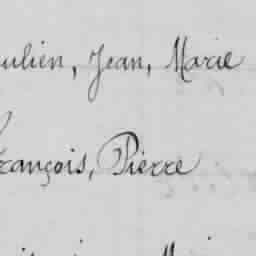 ulien, Jean, Marie
François, Pierre